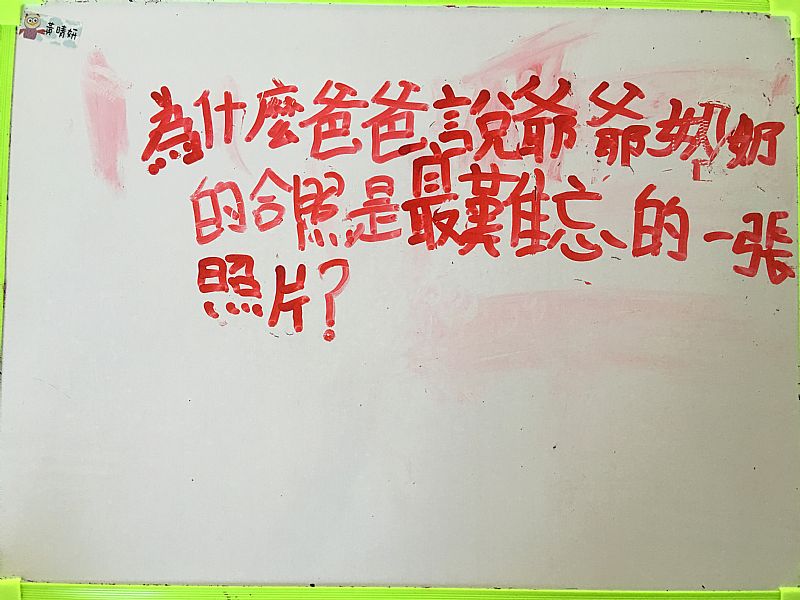 黃晴妍
為什麼爸爸說爺爺奶奶
的合照是最難忘的一張
照片?